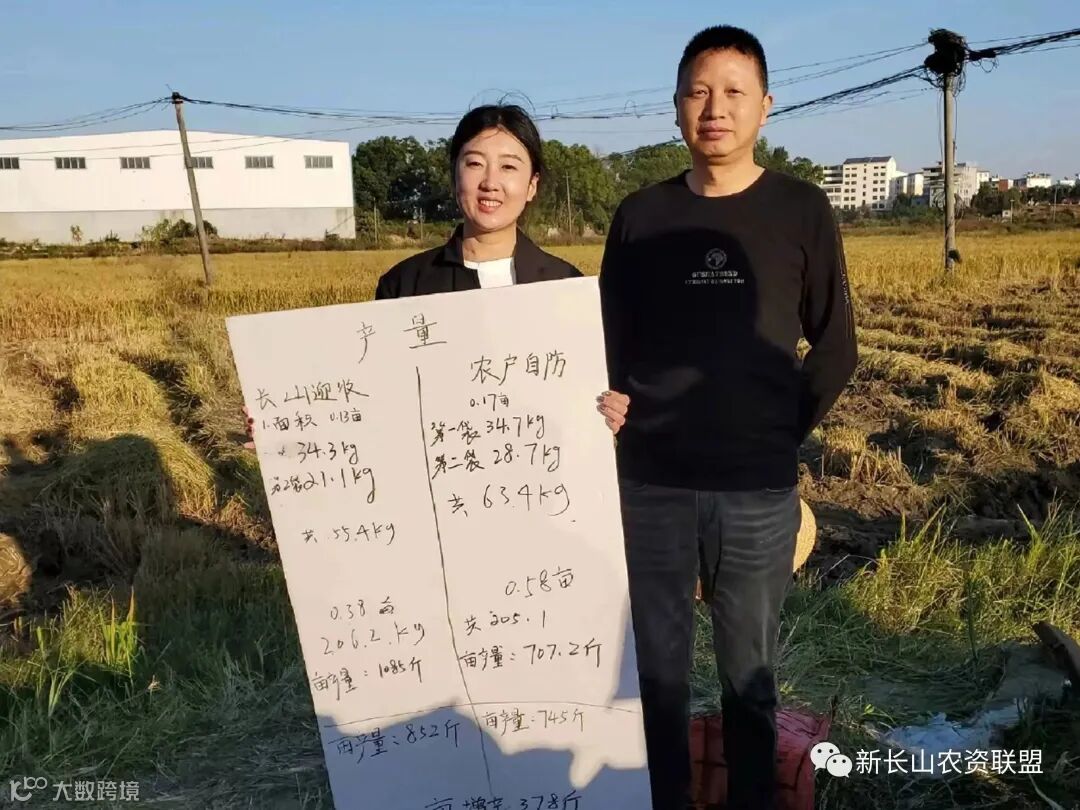 产量
长山迎收
1.面积 0.13亩
34.3kg
第2袋21.1kg
共 55.4kg
0.38亩
206.2.kg
亩产量：1085斤
亩产量：852斤
农户自防
0.17亩
第一袋 34.7kg
第二袋 28.7kg
共 63.4kg
0.58亩
共205.1
亩产量：707.2斤
亩产量：745斤
378斤
新长山农资联盟
大数跨境